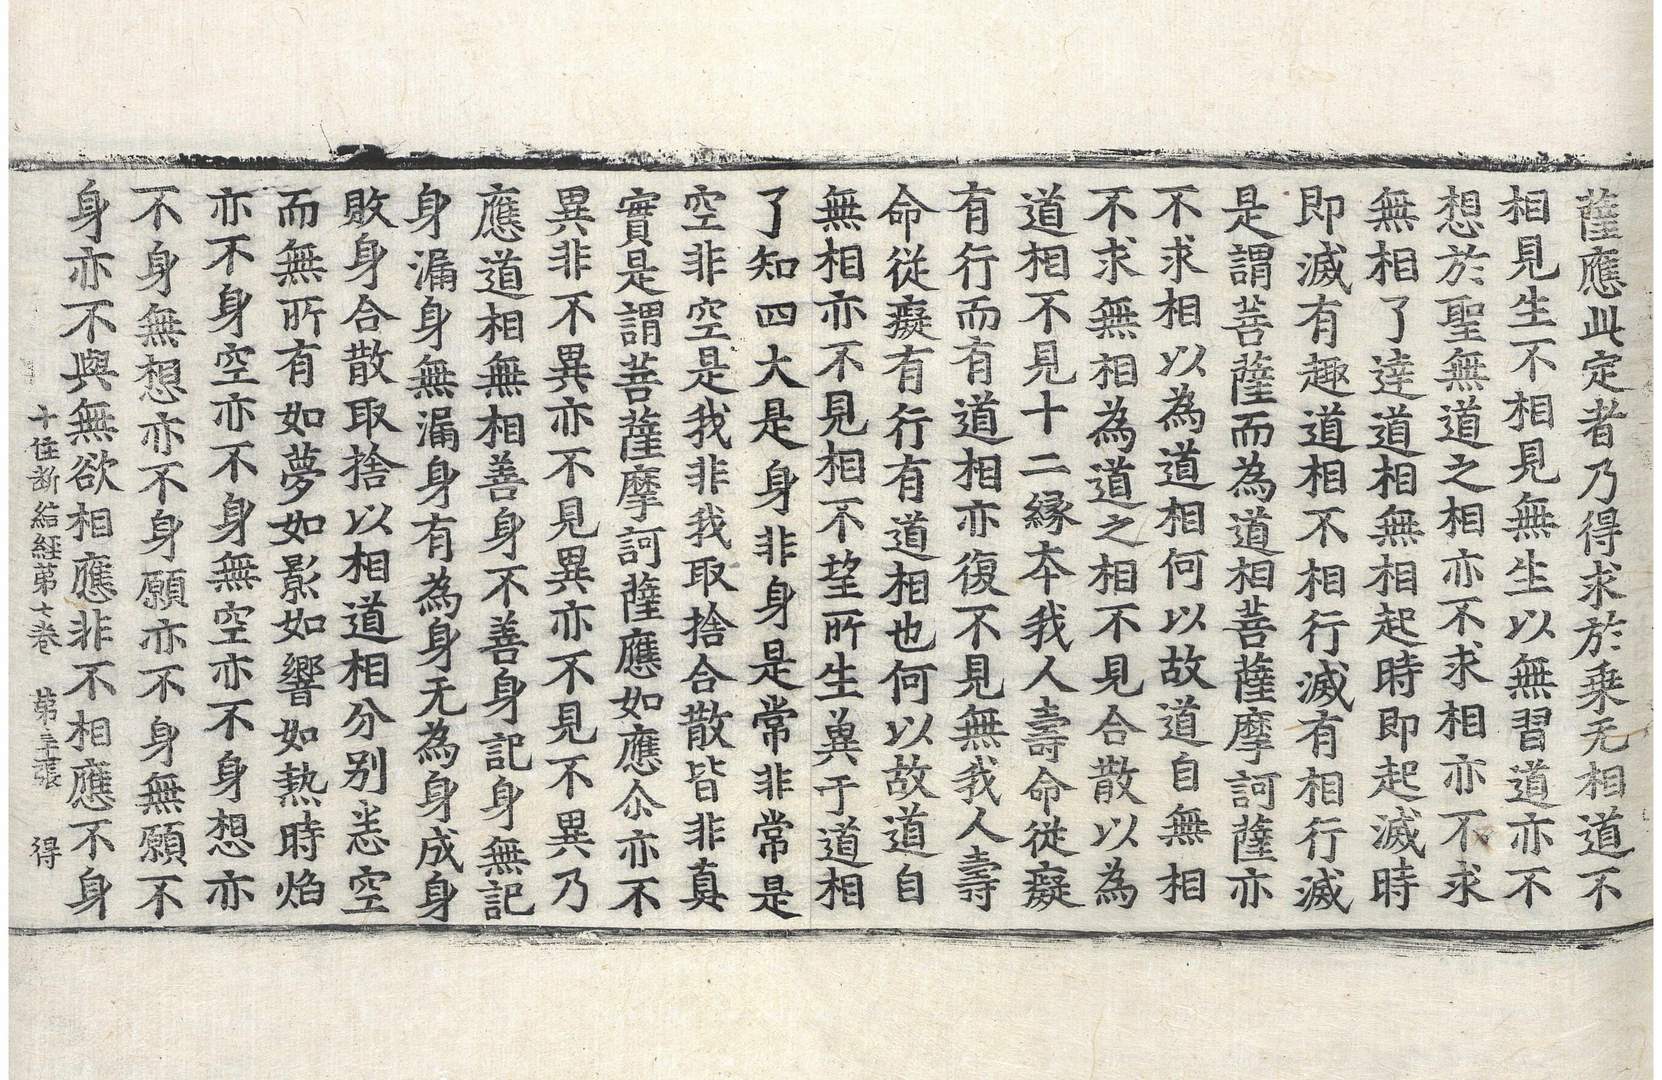 薩應此定者乃得求於乗无相道不
相見生不相見無生以無習道亦不
想於聖無道之相亦不求相亦不求
無相了達道相無相起時即起滅時
即滅有趣道相不相行滅有相行滅
是謂菩薩而為道相菩薩摩訶薩亦
不求相以為道相何以故道自無相
不求無相為道之相不見合散以為
道相不見十二緣夲我人壽命從癡
有行而有道相亦復不見無我人壽
命從癡有行有道相也何以故道自
無相亦不見相不望所生兾于道相
了知四大是身非身是常非常是
空非空是我非我取捨合散皆非真
實是謂菩薩摩訶薩應如應尒亦不
異非不異亦不見異亦不見不異乃
應道相無相善身不善身記身無記
身漏身無漏身有為身无為身成身
敗身合散取捨以相道相分別悉空
而無所有如夢如影如響如熱時焰
亦不身空亦不身無空亦不身想亦
不身無想亦不身願亦不身無願不
身亦不與無欲相應非不相應不身
十住断結經苐七卷 苐三張 得